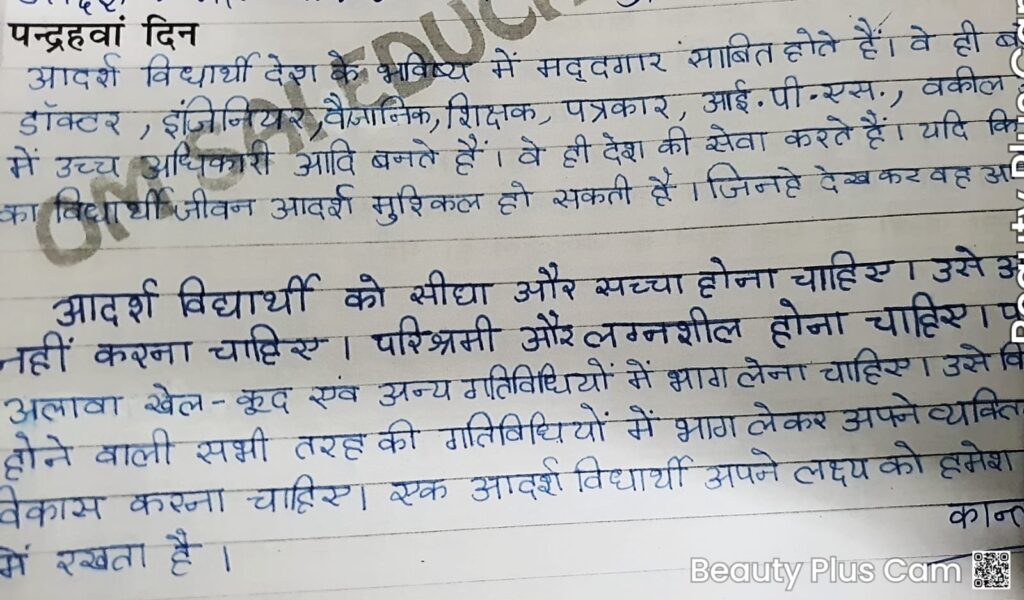 पन्द्रहवां दिन
आदर्श विधार्थी देश के भविष्य में मद्दगार साबित होते हैं। वे ही
डॉक्टर, इंजिनियर, वैज्ञानिक, शिक्षक, पत्रकार, आई.पी.एस., वकील
में उच्च अधिकारी आदि बनते हैं। वे ही देश की सेवा करते हैं। यदि
का विधार्थी जीवन आदर्श मुश्किल हो सकती है। जिनहे देख कर वह
आदर्श विद्यार्थी को सीधा और सच्चा होना चाहिए। उसे
नहीं करना चाहिए। परिश्रमी और लग्नशील होना चाहिए।
अलावा खेल-कूद एवं अन्य गतिविधियों में भाग लेना चाहिए। उसे
होने वाली सभी तरह की गतिविधियों में भाग लेकर अपने
विकास करना चाहिए। एक आदर्श विधार्थी अपने लक्ष्य को हमेश
में रखता है।
OM SAI EDUC
Beauty Plus Cam